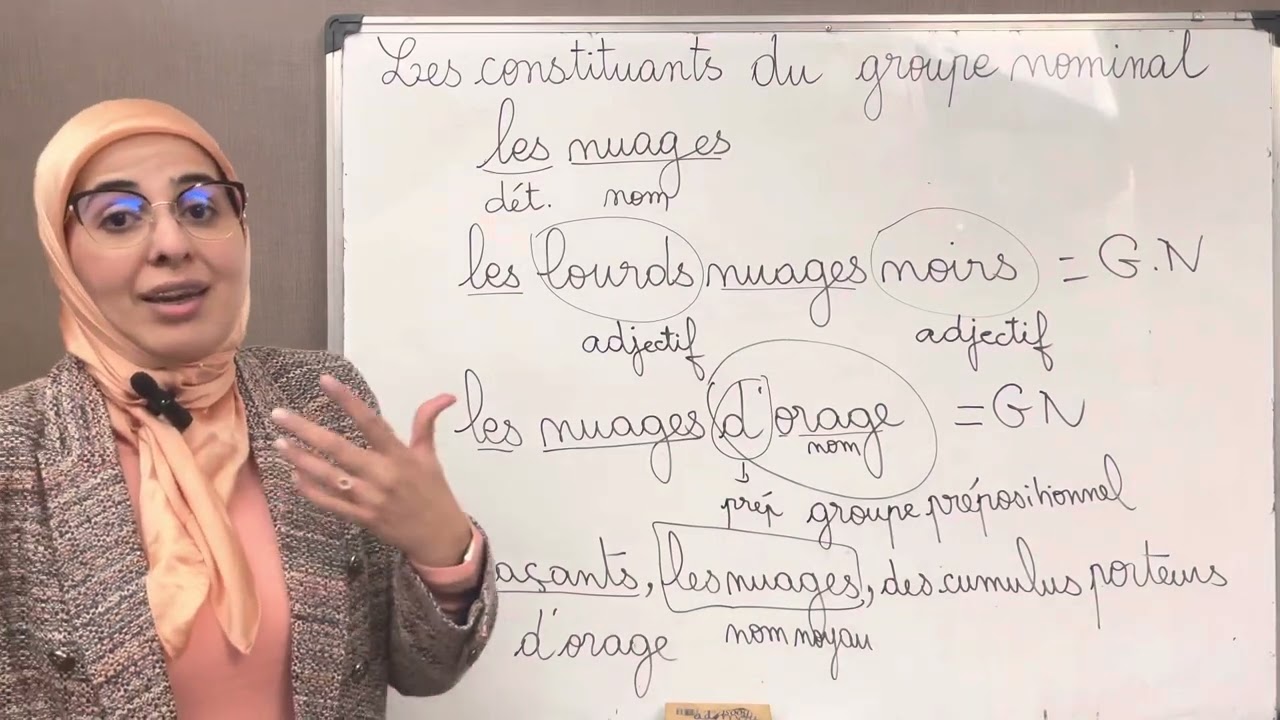 Les constituants du groupe nominal
les nuages
dét. nom
les lourds nuages noirs = G.N
adjectif adjectif
les nuages d'orage = GN
nom
prép groupe prépositionnel
açants, les nuages, des cumulus porteurs
d'orage nom noyau